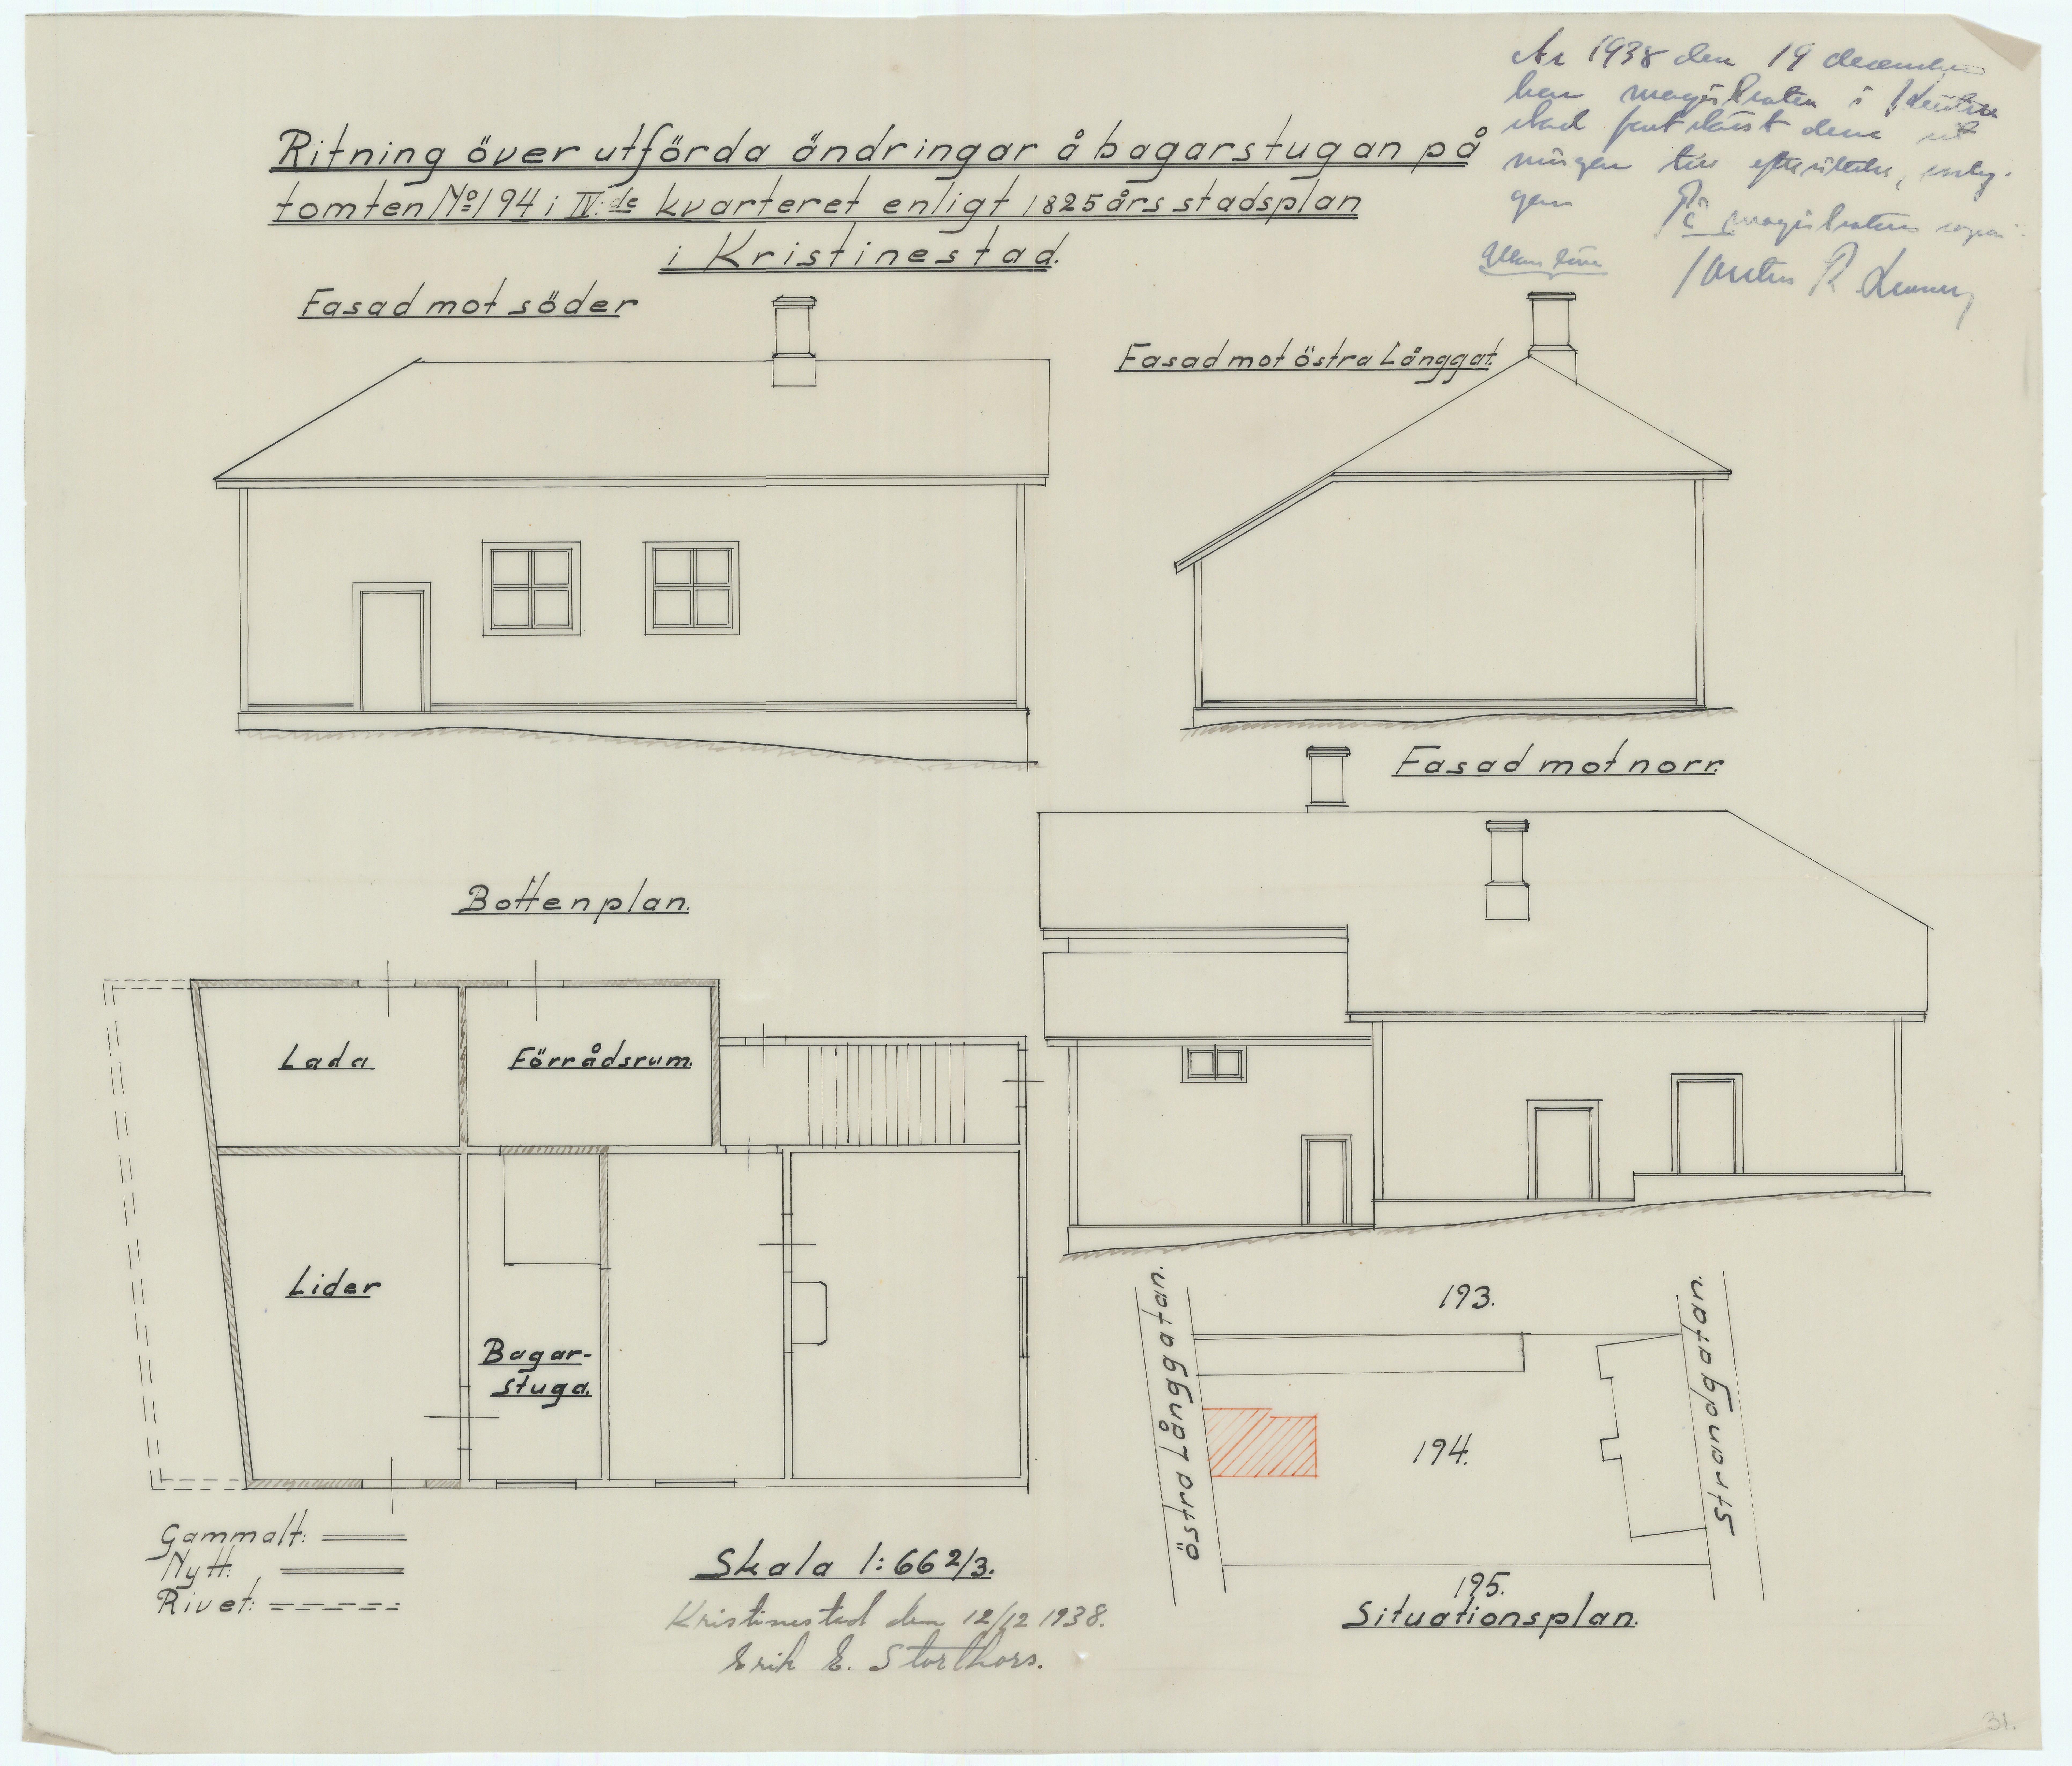 År 1938 den 19 december
har magistraten i Kristine
stad fastställt denna rit
ningen till efterrättelse,
På magistratens vägnar:
Ritning över utförda ändringar å bagarstugan på
tomten No 194 i IV:de kvarteret enligt 1825 års stadsplan
i Kristinestad.
Fasad mot söder
Fasad mot östra Långgat.
Fasad mot norr.
Bottenplan.
Lada
Förrådsrum.
Lider
Bagar-
stuga.
Gammalt:
Nytt:
Rivet:
Skala 1:66 2/3.
Kristinestad den 12/12 1938.
Erik E. Storthors.
193.
östra Långgatan.
Strandgatan.
194.
195.
Situationsplan.
31.